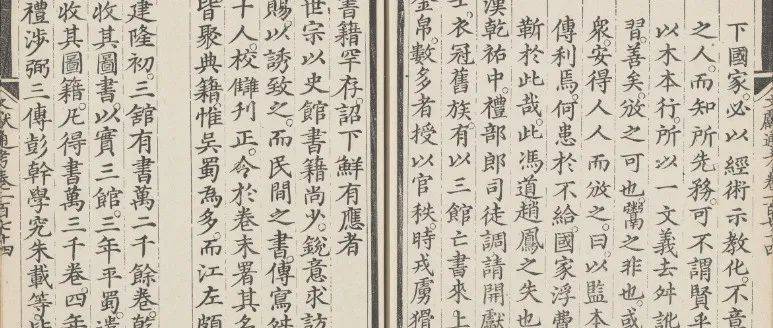 文獻通考卷一百七十四
下國家。必以經術示教化。不意
之人。而知所先務。可不謂賢乎
以木本行。所以一文義去舛訛
習。善矣。攽之可也。鬻之非也。或
衆。安得人人而攽之。曰。以監本
傳利焉。何患於不給。國家浮費
靳於此哉。此馮道趙鳳之失也
漢乾祐中。禮部郎司徒調請開獻
士。衣冠舊族。有以三館亡書來上
金帛。數多者授以官秩。時戎虜猾
書籍罕存。詔下鮮有應者
世宗以史館書籍尚少。銳意求訪
賜。以誘致之。而民間之書。傳寫舛
十人。校讎刊正。令於卷末署其名
皆聚典籍。惟吳蜀為多。而江左頗
建隆初。三館有書萬二千餘卷。乾
收其圖書。以實三館。三年平蜀。遣
收其圖籍。凡得書萬三千卷。四年
禮涉弼三傳彭幹學究朱載等。皆
文獻通考卷一百七十四